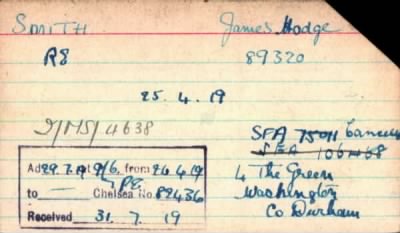 SMITH James Hodge
RE 89320
25.4.19
D/MS/4638
SFA 75011 Cancel
SFA 106468
4 The Green
Washington
Co Durham
Ad 29.7.19 at 9/6. from 26.4.19
RE
to — Chelsea No. 82436
Received 31. 7. 19